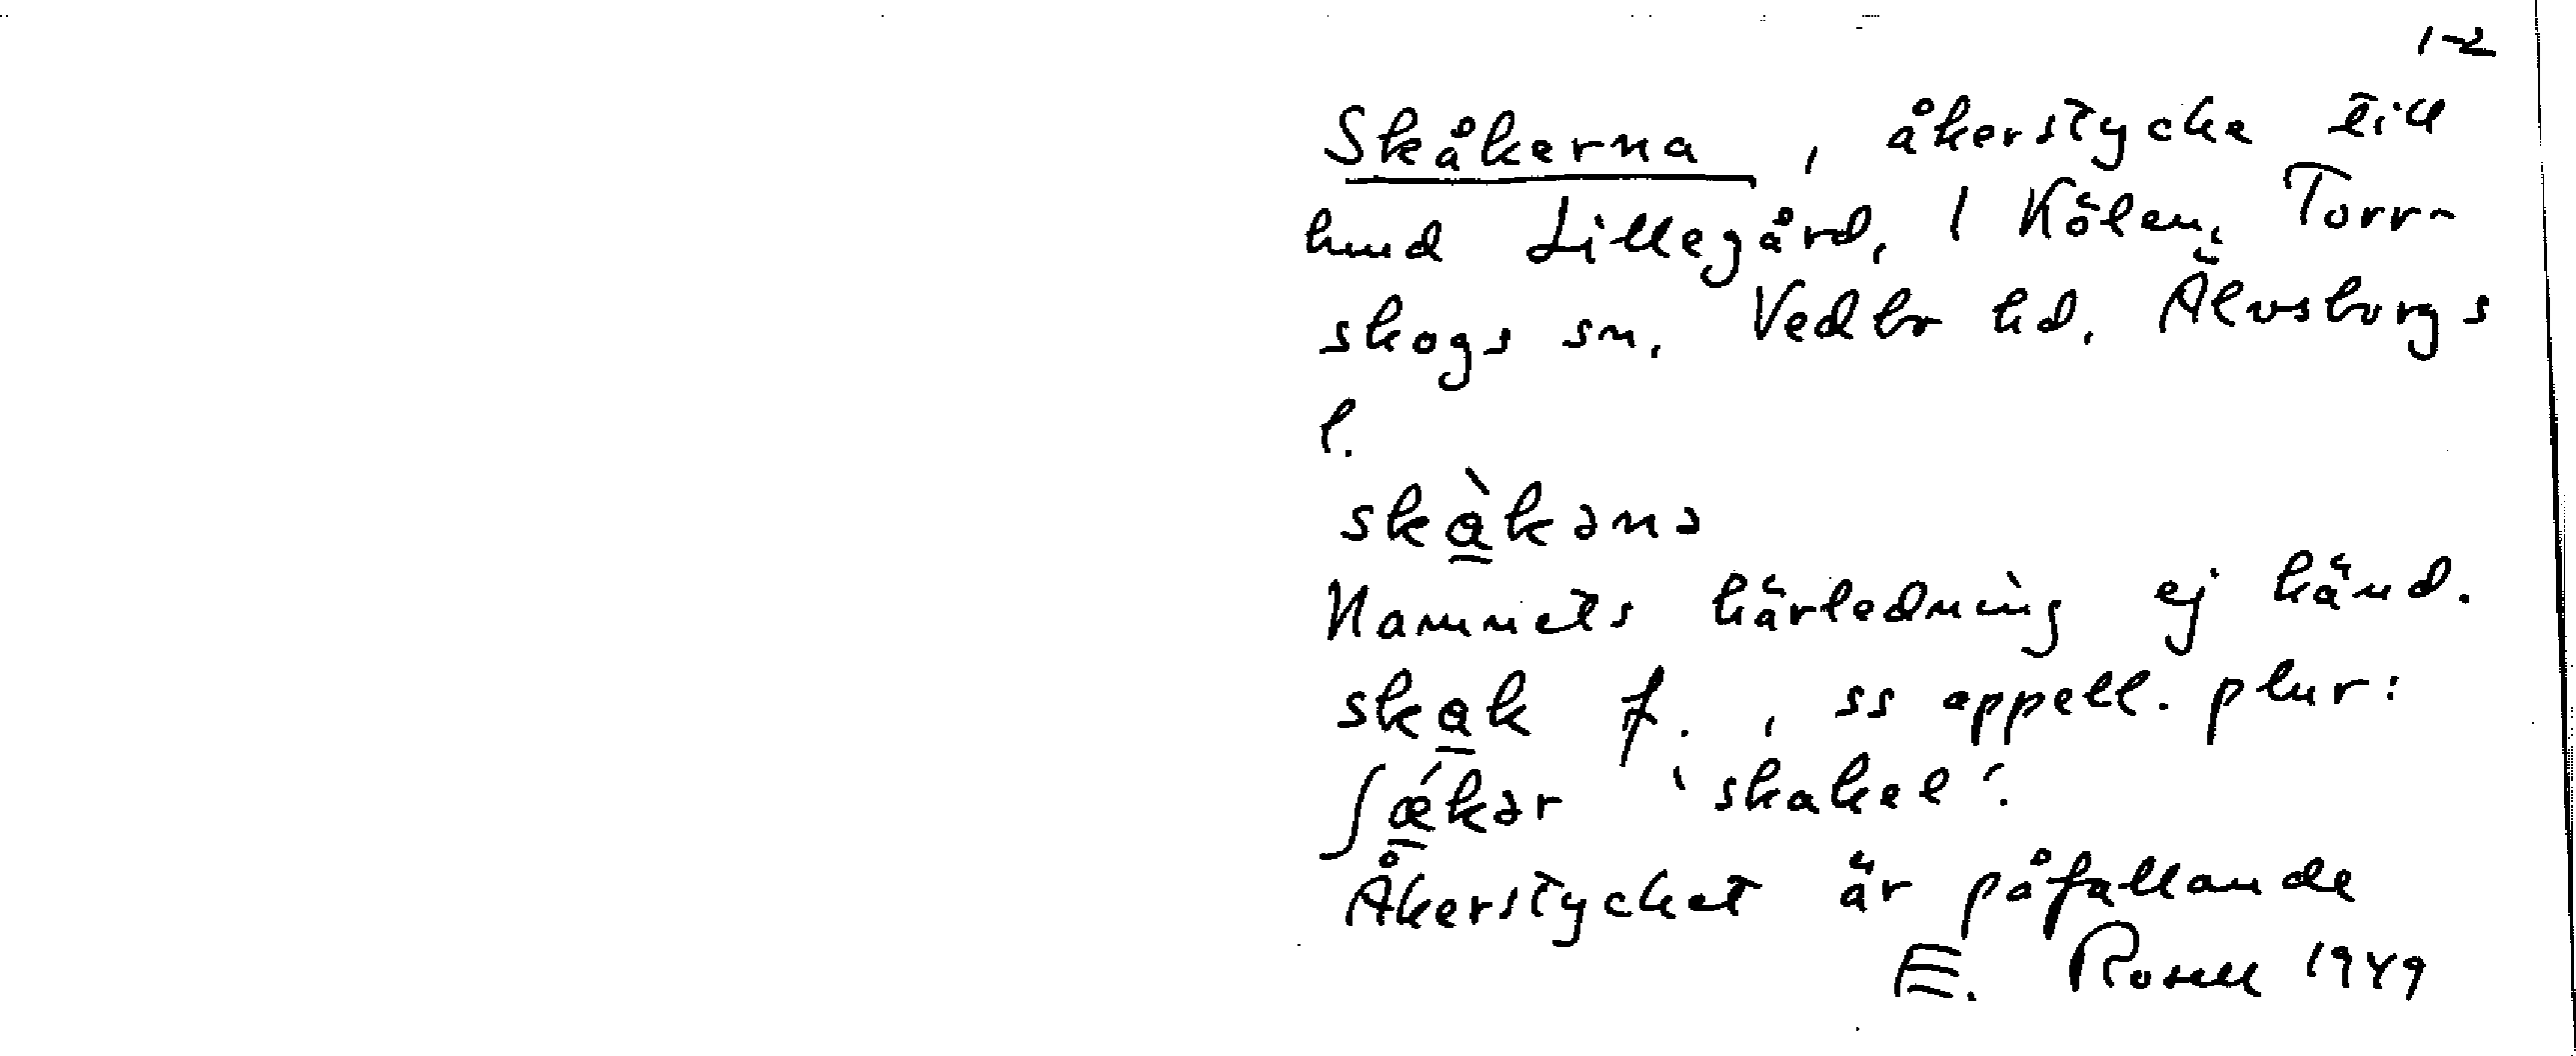 1-2
Skåkerna, åkerstycke till
hmd Lillegård, 1 Kölen, Torr-
skogs sn, Vedbo hd, Älvsborgs
l.
skàkənə
Namnets härledning ej känd.
skak f., ss appell. plur:
ʃǽkər 'skakel'.
Åkerstycket är påfallande
E. Rosell 1949